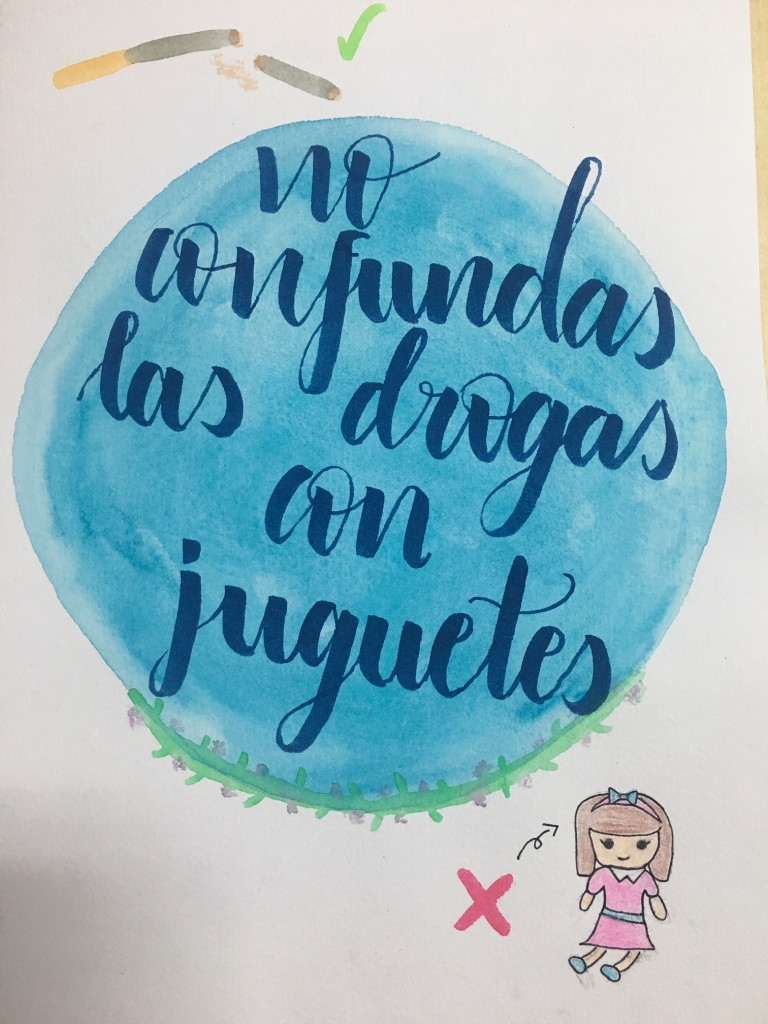 no
confundas
las drogas
con
juguetes